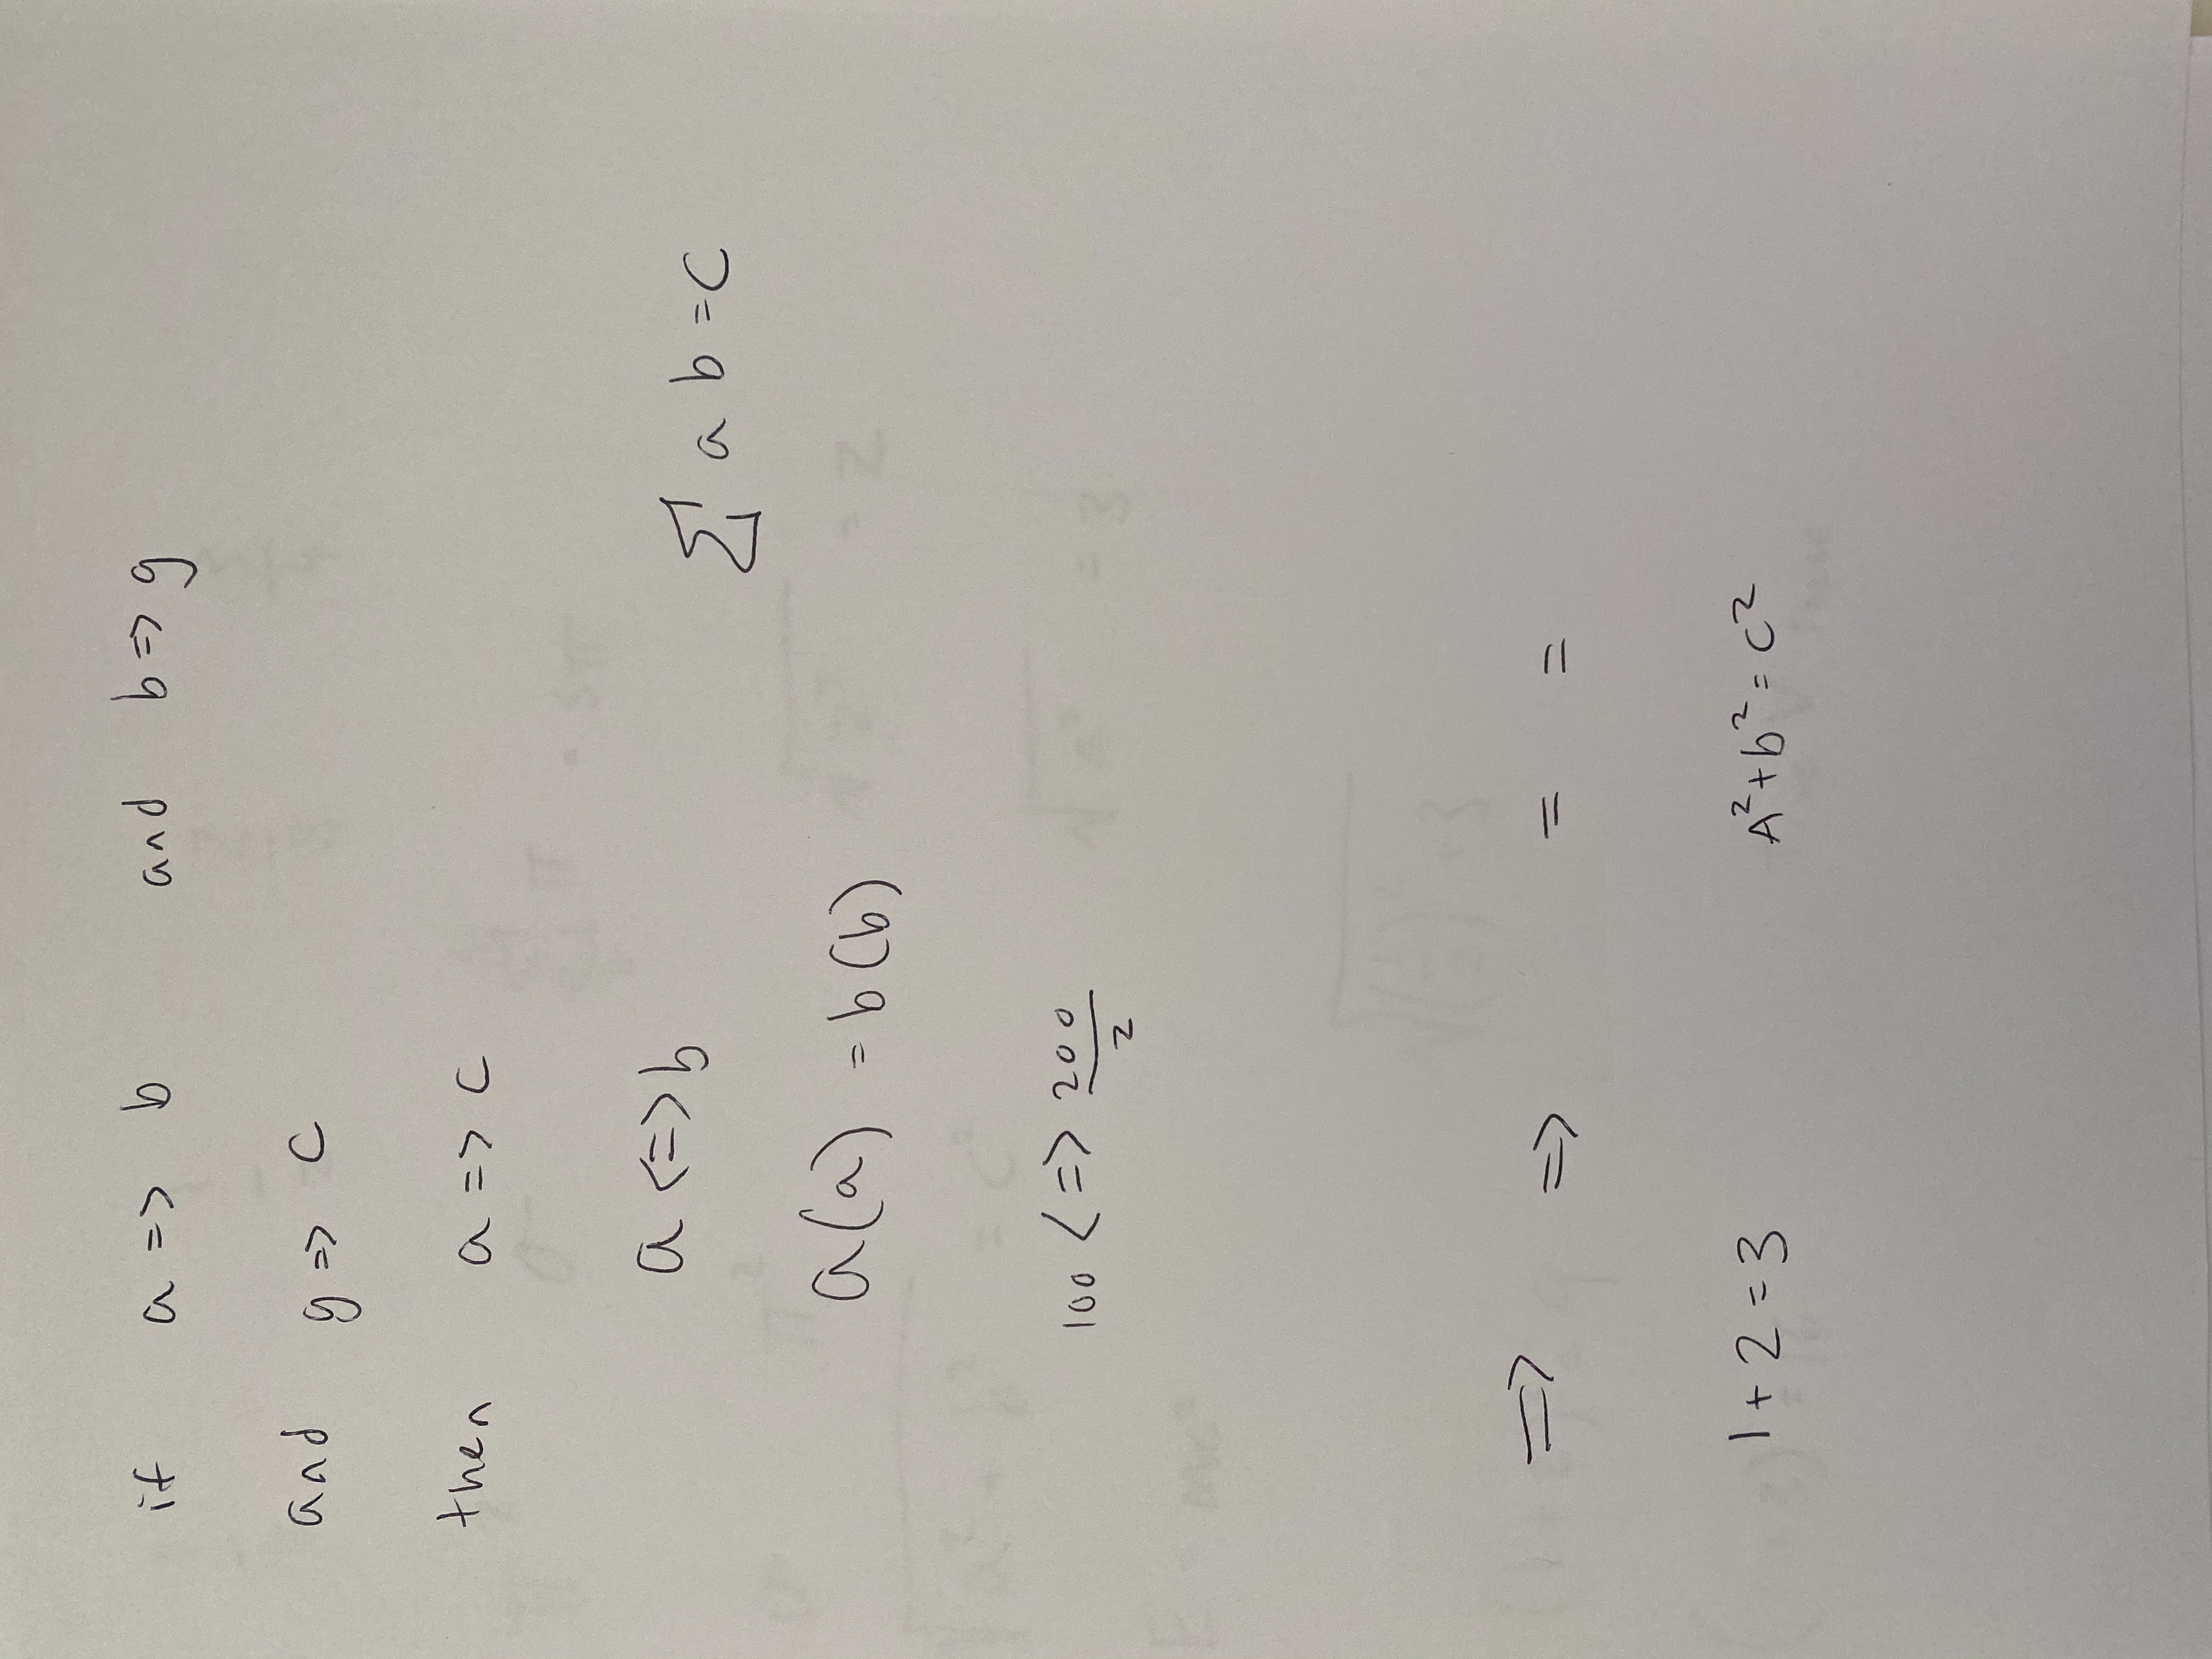 if a => b and b => g
and g => c
then a => c
a <=> b
∑ a b = c
a(a) = b(b)
100 <=> 200/2
=> => = =
1 + 2 = 3 A² + b² = c²